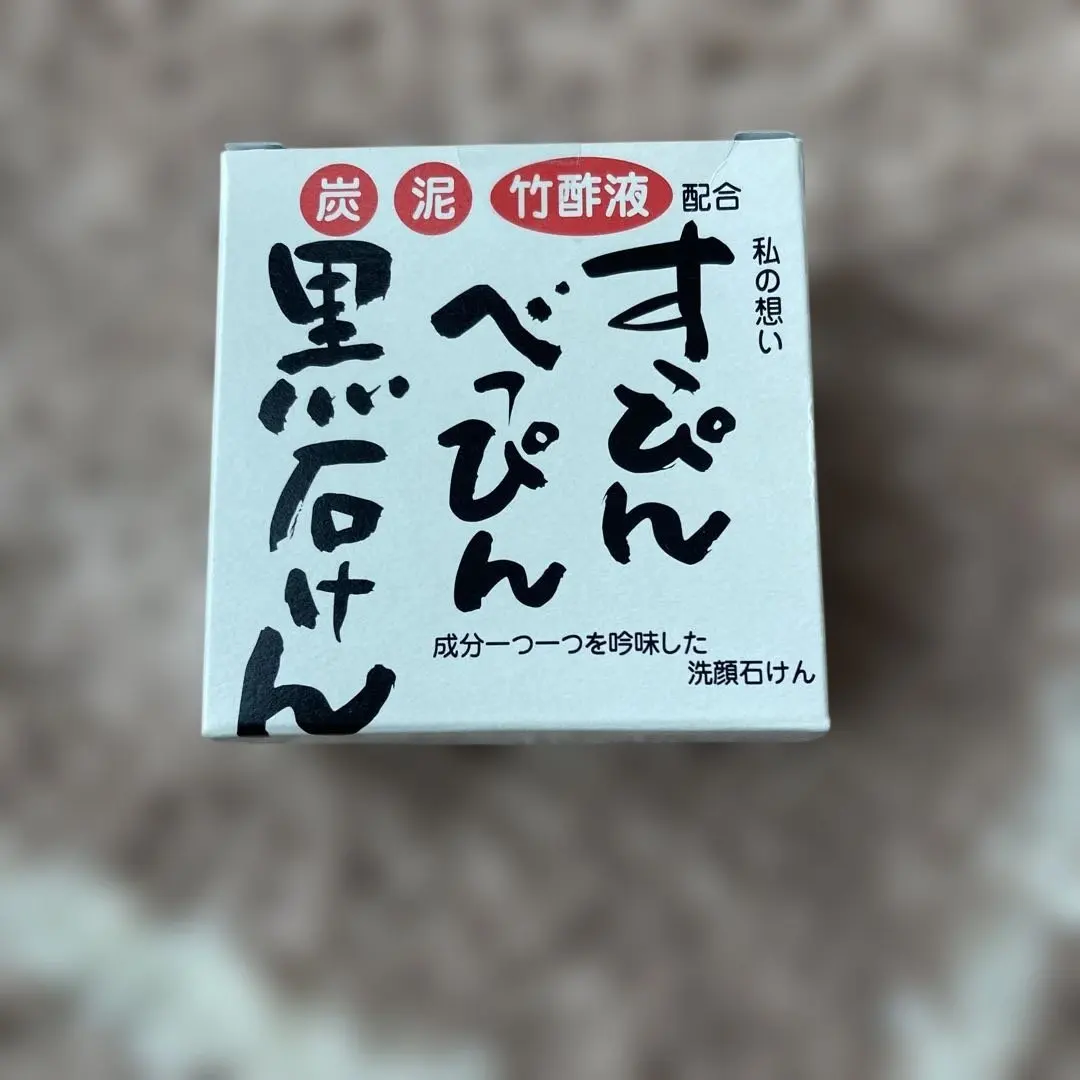 炭 泥 竹酢液 配合
私の想い
すっぴん
べっぴん
黒石けん
成分一つ一つを吟味した
洗顔石けん